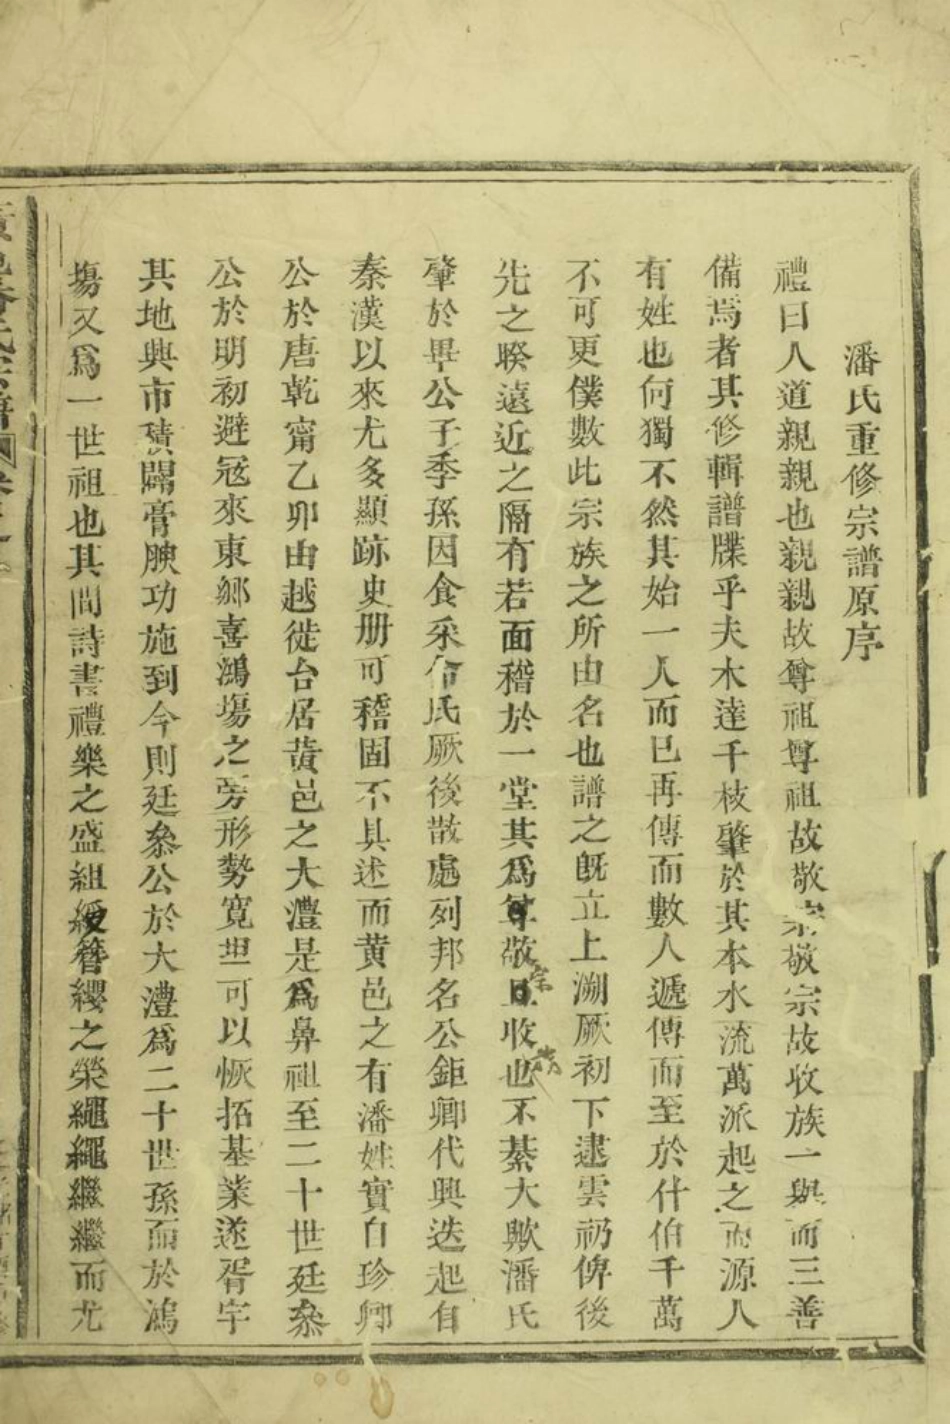 潘氏重修宗譜原序
禮曰人道親親也親親故尊祖尊祖故敬宗敬宗故收族一與而三善
備焉者其修輯譜牒乎夫木達千枝肇於其本水流萬派起之而源人
有姓也何獨不然其始一人而已再傳而數人遞傳而至於什伯千萬
不可更僕數此宗族之所由名也譜之旣立上溯厥初下逮雲礽俾後
先之暌遠近之隔有若面稽於一堂其爲尊敬宗且收也族不綦大歟潘氏
肇於畢公子季孫因食采命氏厥後散處列邦名公鉅卿代興迭起自
秦漢以來尤多顯跡史册可稽固不具述而黄邑之有潘姓實自珍卿
公於唐乾甯乙卯由越徙台居黄邑之大澧是爲鼻祖至二十世廷叅
公於明初避冦來東鄉喜鴻塲之旁形勢寛坦可以恢拓基業遂胥宇
其地與市𢌿闢膏腴功施到今則廷叅公於大澧爲二十世孫而於鴻
塲又爲一世祖也其間詩書禮樂之盛組綬簪纓之榮繩繩繼繼而尤
氏宗譜